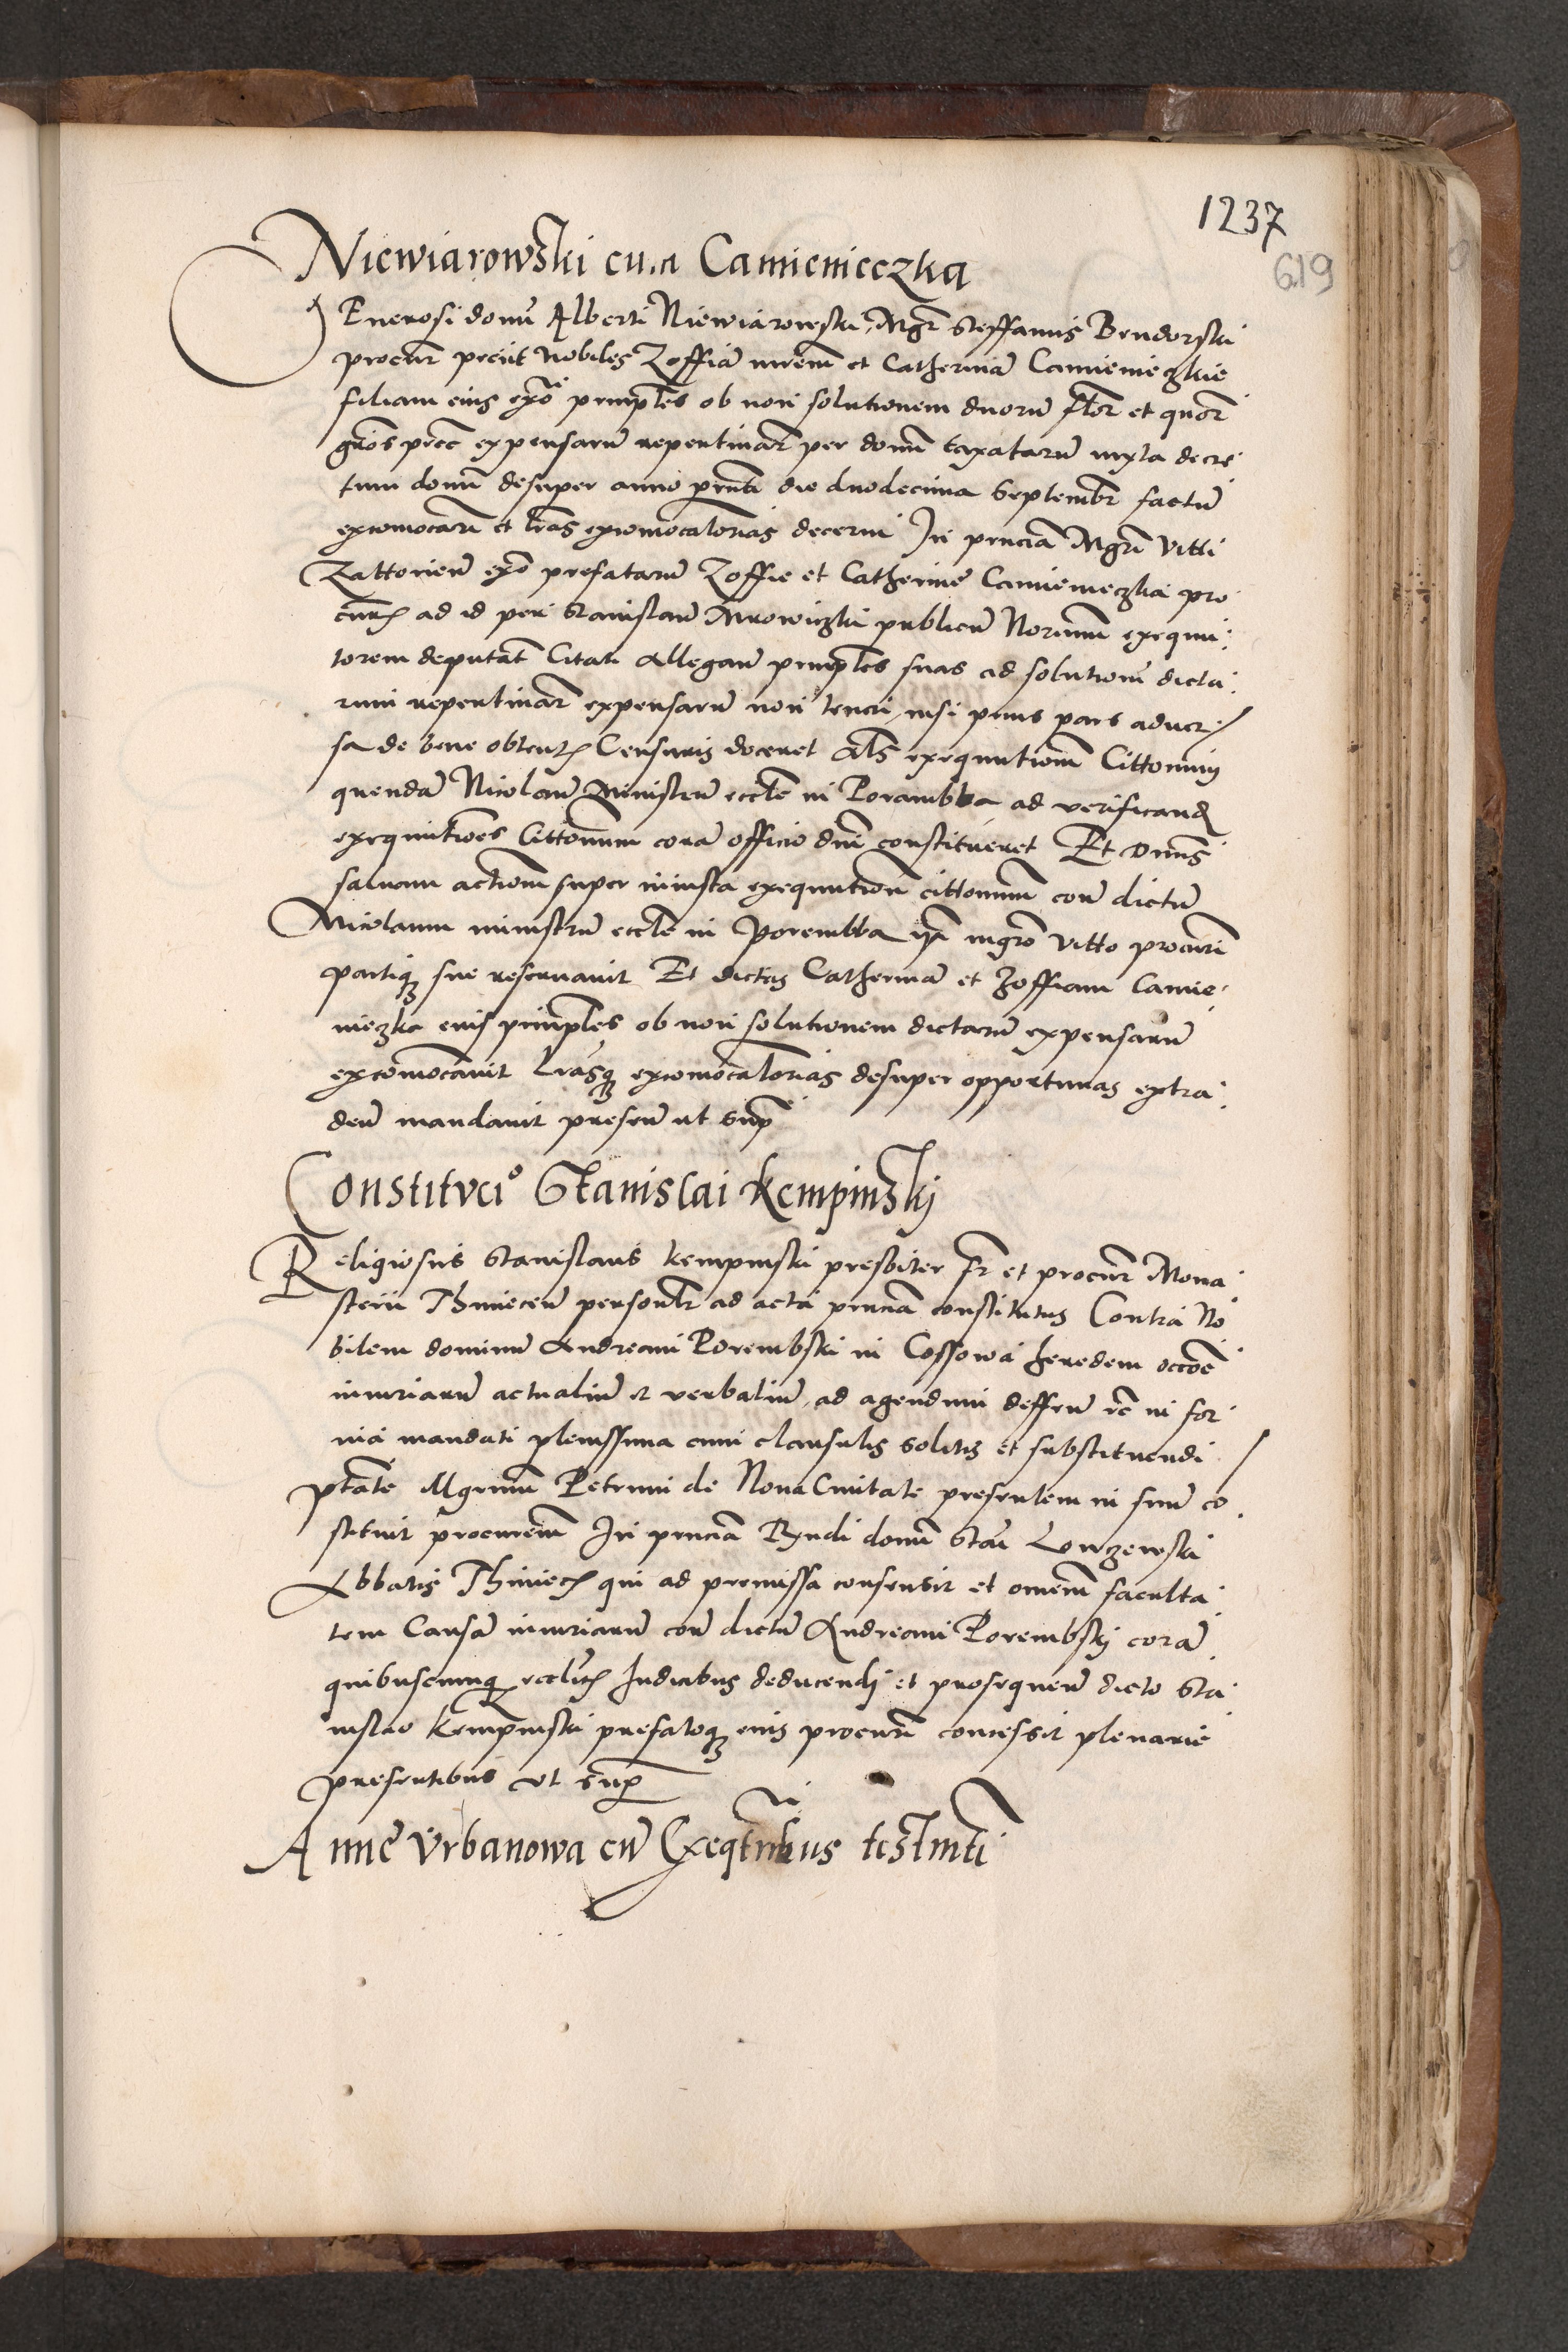 1237
619
Niewiarowski cum Camienieczka
Generosi domi Alberti Niewiarowski Mgr Steffanus Bendorski
procur petiit Nobiles Zoffia mrem et Catherina Camienieczkie
filiam eius ex prinples ob non solutionem duoru flor et quor
gros expensaru repentinar per domi taxataru iuxta decre
tum domi desuper anno prnti die duodecima Septembr factu
excomocari et lras excomocatorias decerni In prncia Mgri Vitti
Zattorien ex prefataru Zoffie et Catherine Camienieczka pro
curis ad id per Stanislau Mrowiczki publicu Norium exequu
torem deputat Citati Allegan prinples suas ad solutionem dicta
rum repentinar expensaru non teneri, nisi prius pars aduer
sa de bene obtentis Censuris doceret Als exequutionem Cittonum
quenda Nicolau Ministru eccle in Porambba ad verificand
exequutiones Cittonum cora officio dni constitueret Et Dnus
saluam actionem super iniusta exequution cittonum con dictu
Nicolaum ministru eccle in Porembba mgro Vitto procuri
partiq sue reseruauit Et dictas Catherina et Zoffiam Camie
nieczka prinples ob non solutionem dictaru expensaru
excomocauit Lrasq excomocatorias desuper opportunas extra
den mandauit presen ut supra
Constitucio Stanislai Kempinskj
Religiosus Stanislaus Kempinski presbiter fr et procur Mona
sterii Thinecen personlr ad acta prncia constitutus Contra No
bilem dominu Andream Porembski in Cossowa heredem occoe
iniuriaru actualiu et verbaliu, ad agendum deffen rc in for
ma mandati plenissima cum clausulis solitis et substituendi
ptate Mgrum Petrum de Noua Ciuitate presentem in suu co
stituit procurem In prncia Rndi domi Stai
Abbatis Thinecis qui ad premissa consensit et omem faculta
tem Causa iniuriaru con dictu Andream Porembskj cora
quibuscunq Iudicibus deducendj et prosequen dicto Sta
nislao Kempinski prefatoq eius procuri concessit plenarie
presentibus ut supra
Anne Vrbanowa cu Exeqtribus testmti